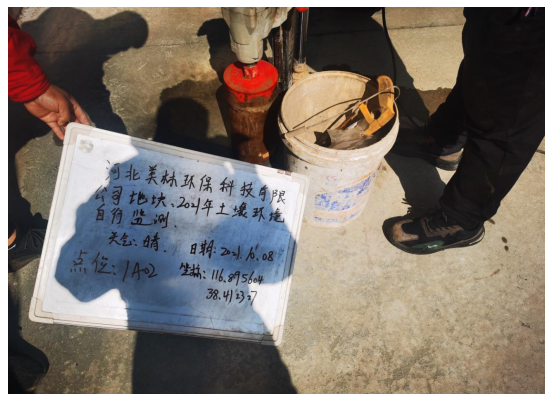 河北美林环保科技有限
公司地块、2021年土壤环境
自行监测.
天气: 晴. 日期: 2021.10.08
点位: 1A02 坐标: 116.895604
38.412327